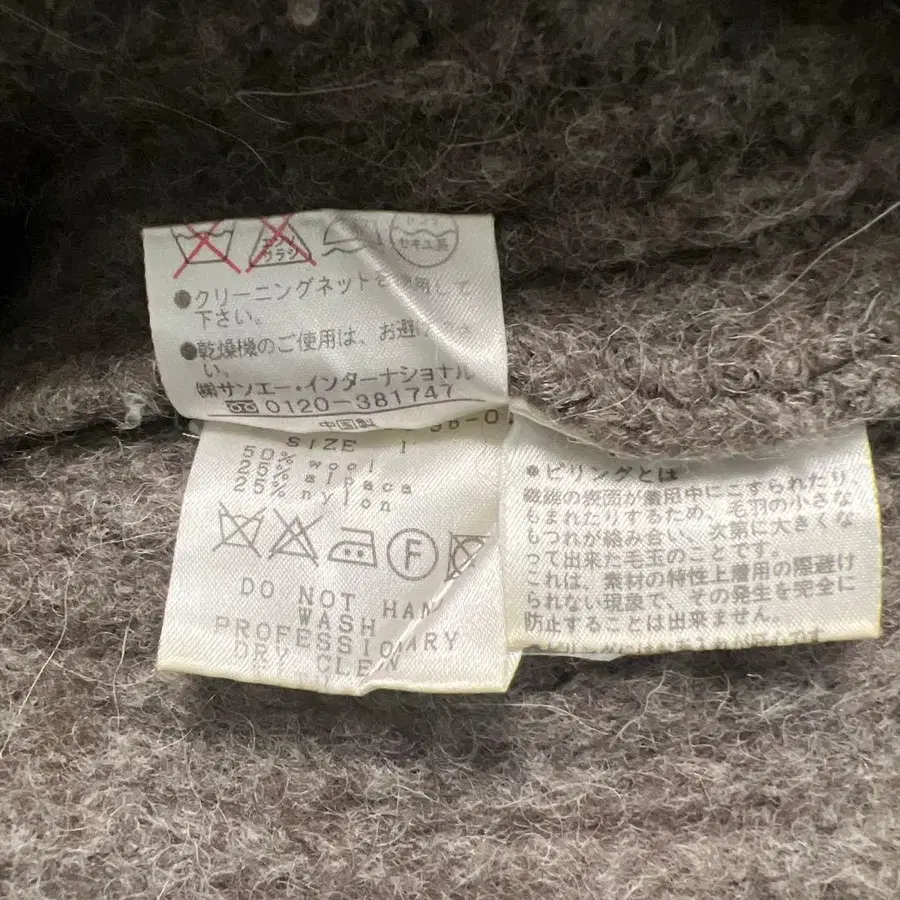 エンソ
サラシ
セキユ系
●クリーニングネットを使用して
下さい。
●乾燥機のご使用は、お避け下さ
い。
㈱サンエー・インターナショナル
0120-381747
中国製
SIZE 1
50% wool
25% alpaca
25% nylon
F
DO NOT HAND
WASH
PROFESSIONARY
DRY CLEEN
●ピリングとは
繊維の表面が着用中にこすられたり、
もまれたりするため、毛羽の小さな
もつれが絡み合い、次第に大きくな
って出来た毛玉のことです。
これは、素材の特性上着用の際避け
られない現象で、その発生を完全に
防止することは出来ません。